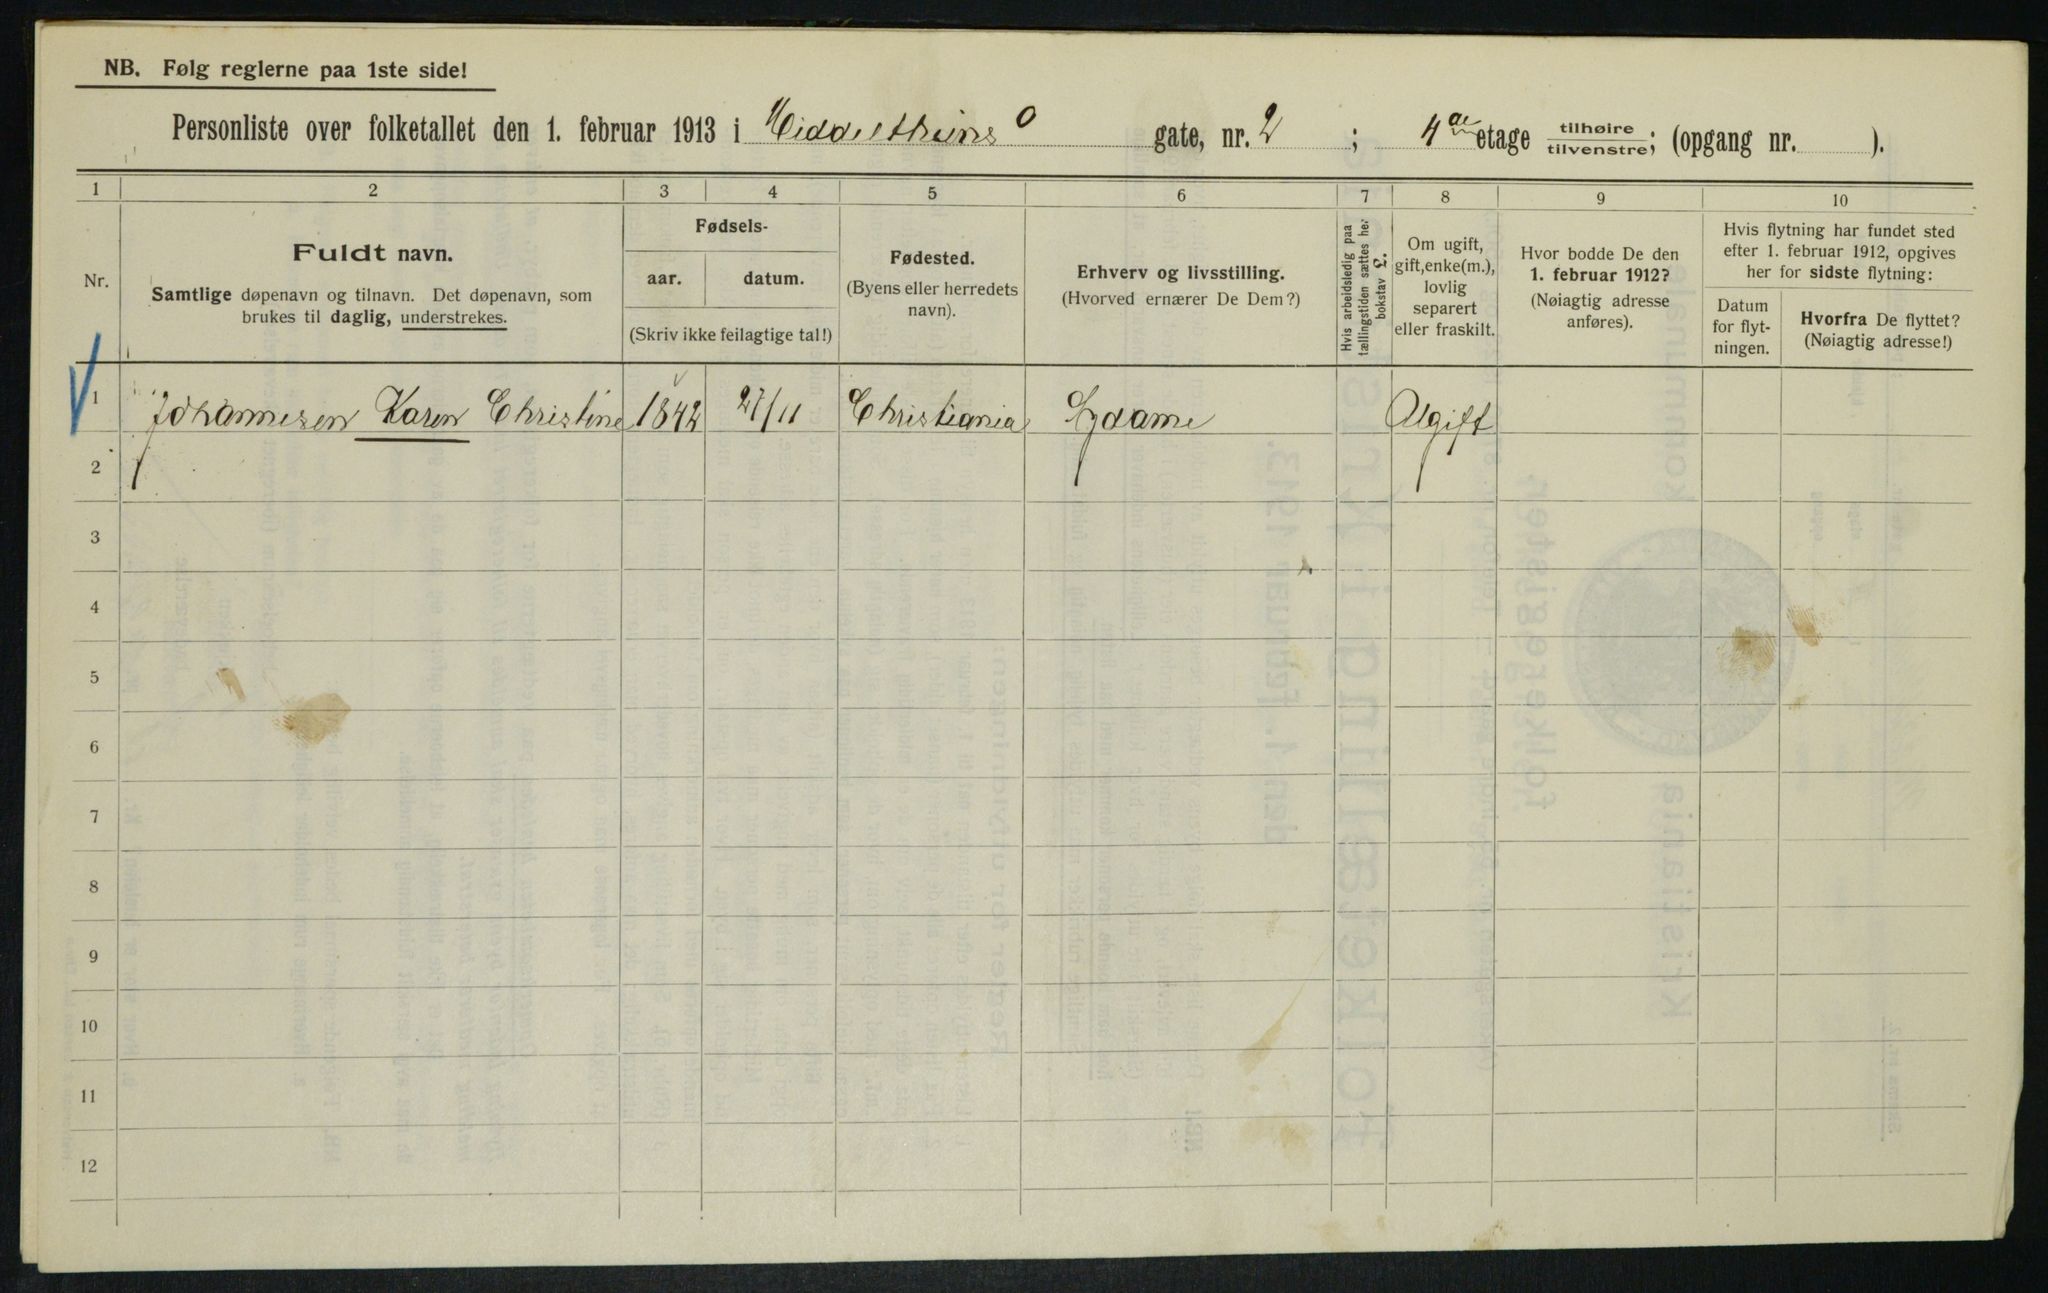 NB. Følg reglerne paa 1ste side!
Personliste over folketallet den 1. februar 1913 i Middelthuns gate, nr. 2 ; 4de etage tilhøire / tilvenstre; (opgang nr. ).
1 2 3 4 5 6 7 8 9 10
Nr.
Fuldt navn.
Samtlige døpenavn og tilnavn. Det døpenavn, som
brukes til daglig, understrekes.
Fødsels-
aar. datum.
(Skriv ikke feilagtige tal!)
Fødested.
(Byens eller herredets
navn).
Erhverv og livsstilling.
(Hvorved ernærer De Dem?)
Hvis arbeidsledig paa
tællingstiden sættes her
bokstav L.
Om ugift,
gift, enke(m.),
lovlig
separert
eller fraskilt.
Hvor bodde De den
1. februar 1912?
(Nøiagtig adresse
anføres).
Hvis flytning har fundet sted
efter 1. februar 1912, opgives
her for sidste flytning:
Datum
for flyt-
ningen.
Hvorfra De flyttet?
(Nøiagtig adresse!)
1 Johannesen Karen Christine 1842 27/11 Christiania Ugift
2
3
4
5
6
7
8
9
10
11
12